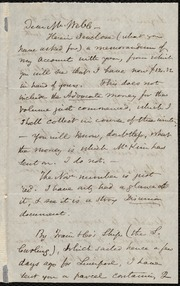 Dear Mr. Webb,
Herein I enclose (what you
have asked for) a memorandum of
my account with you, from which
you will see that I have now
in hand of yours. This does not
include the Advocate money for the
volume just commenced, which I
shall collect in course of the winter,
— you will know, doubtless, what
the money is which McKim has
sent on. I do not.
The Nov number is just
rec'd. I have only had a glance at
it; I see it is a very
document.
By Train & Co's Ship (the S.
Curling), which sailed hence a few
days ago for Liverpool, I have
sent you a parcel containing 2